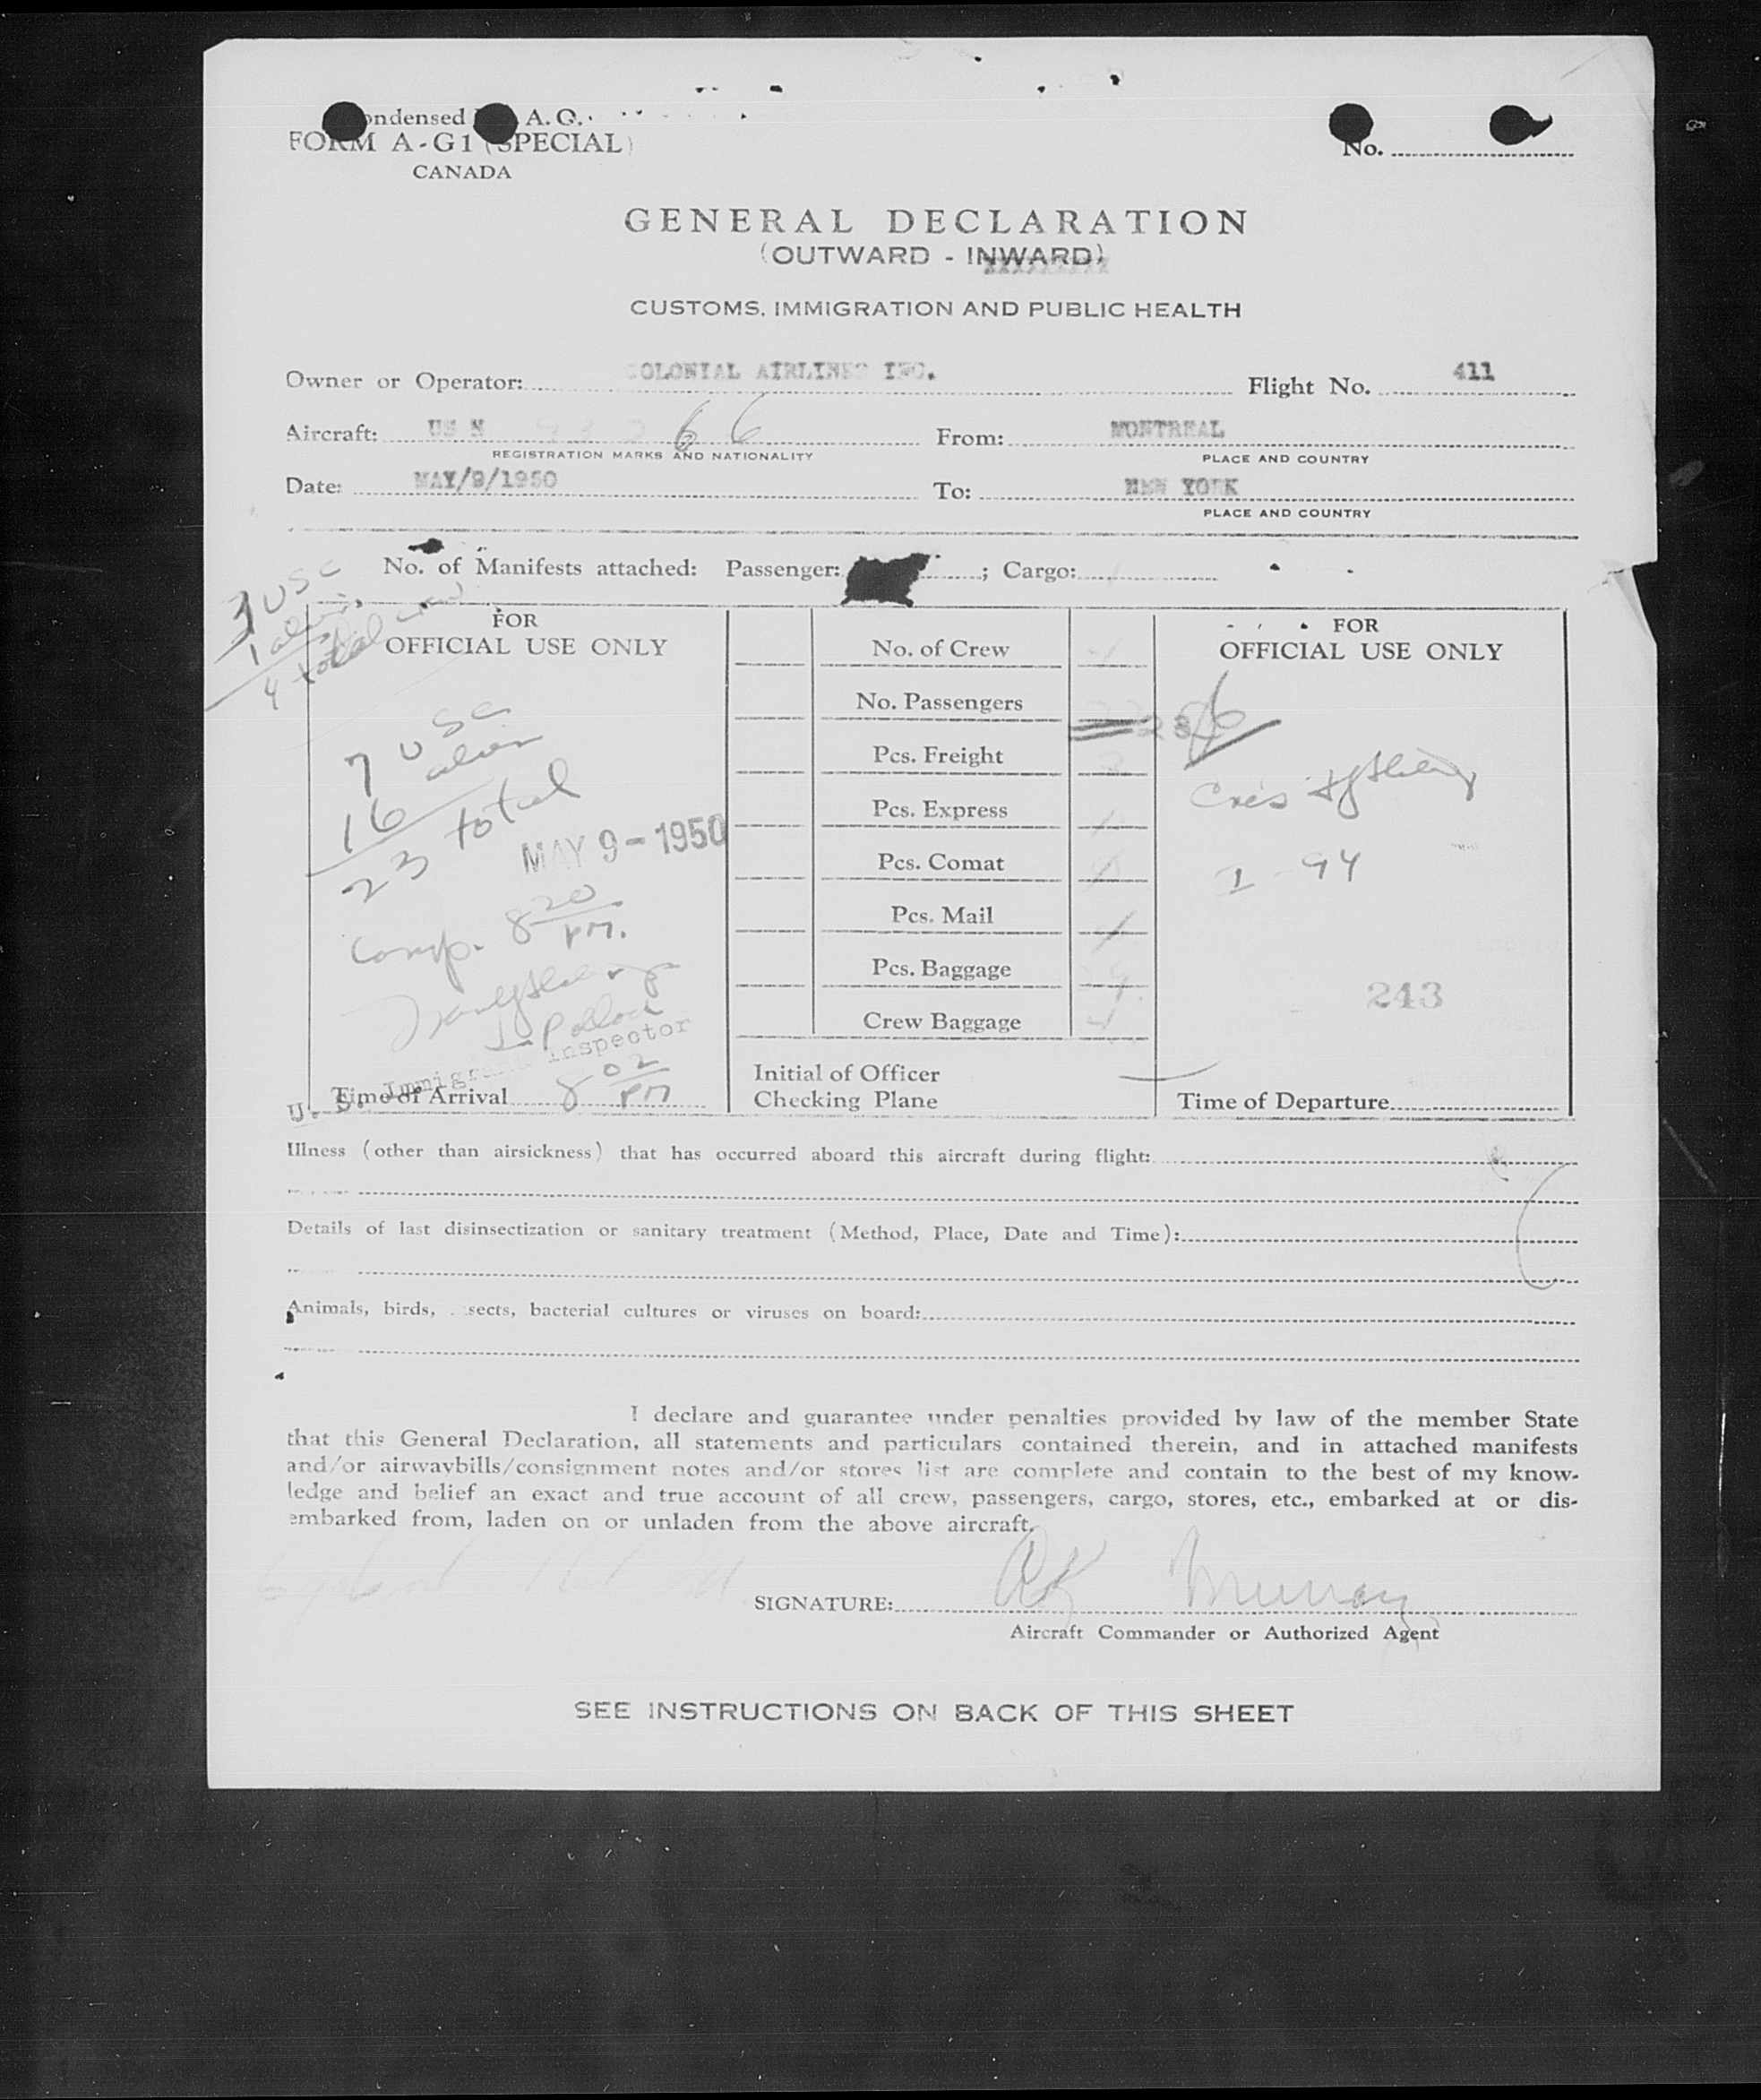 ondensed A. O.
FORM A-G1 (SPECIAL)
CANADA
No.
GENERAL DECLARATION
(OUTWARD - INWARD)
CUSTOMS, IMMIGRATION AND PUBLIC HEALTH
Owner or Operator: COLONIAL AIRLINES INC. Flight No. 411
Aircraft: US N 66 From: MONTREAL
REGISTRATION MARKS AND NATIONALITY PLACE AND COUNTRY
Date: MAY/9/1950 To: NEW YORK
PLACE AND COUNTRY
No. of Manifests attached: Passenger: ; Cargo:
3 USC
1 alien
4 total crew
FOR
OFFICIAL USE ONLY
7 USC
16 alien
23 total
MAY 9 - 1950
Comp. 8 20 PM.
Pollock
U. S. Immigrant Inspector
Time of Arrival 8 02 PM
No. of Crew
No. Passengers
Pcs. Freight
Pcs. Express
Pcs. Comat
Pcs. Mail
Pcs. Baggage
Crew Baggage
Initial of Officer
Checking Plane
FOR
OFFICIAL USE ONLY
I - 94
243
Time of Departure
Illness (other than airsickness) that has occurred aboard this aircraft during flight:
Details of last disinsectization or sanitary treatment (Method, Place, Date and Time):
Animals, birds, sects, bacterial cultures or viruses on board:
I declare and guarantee under penalties provided by law of the member State
that this General Declaration, all statements and particulars contained therein, and in attached manifests
and/or airwaybills/consignment notes and/or stores list are complete and contain to the best of my know-
ledge and belief an exact and true account of all crew, passengers, cargo, stores, etc., embarked at or dis-
embarked from, laden on or unladen from the above aircraft.
SIGNATURE: AK Murray
Aircraft Commander or Authorized Agent
SEE INSTRUCTIONS ON BACK OF THIS SHEET